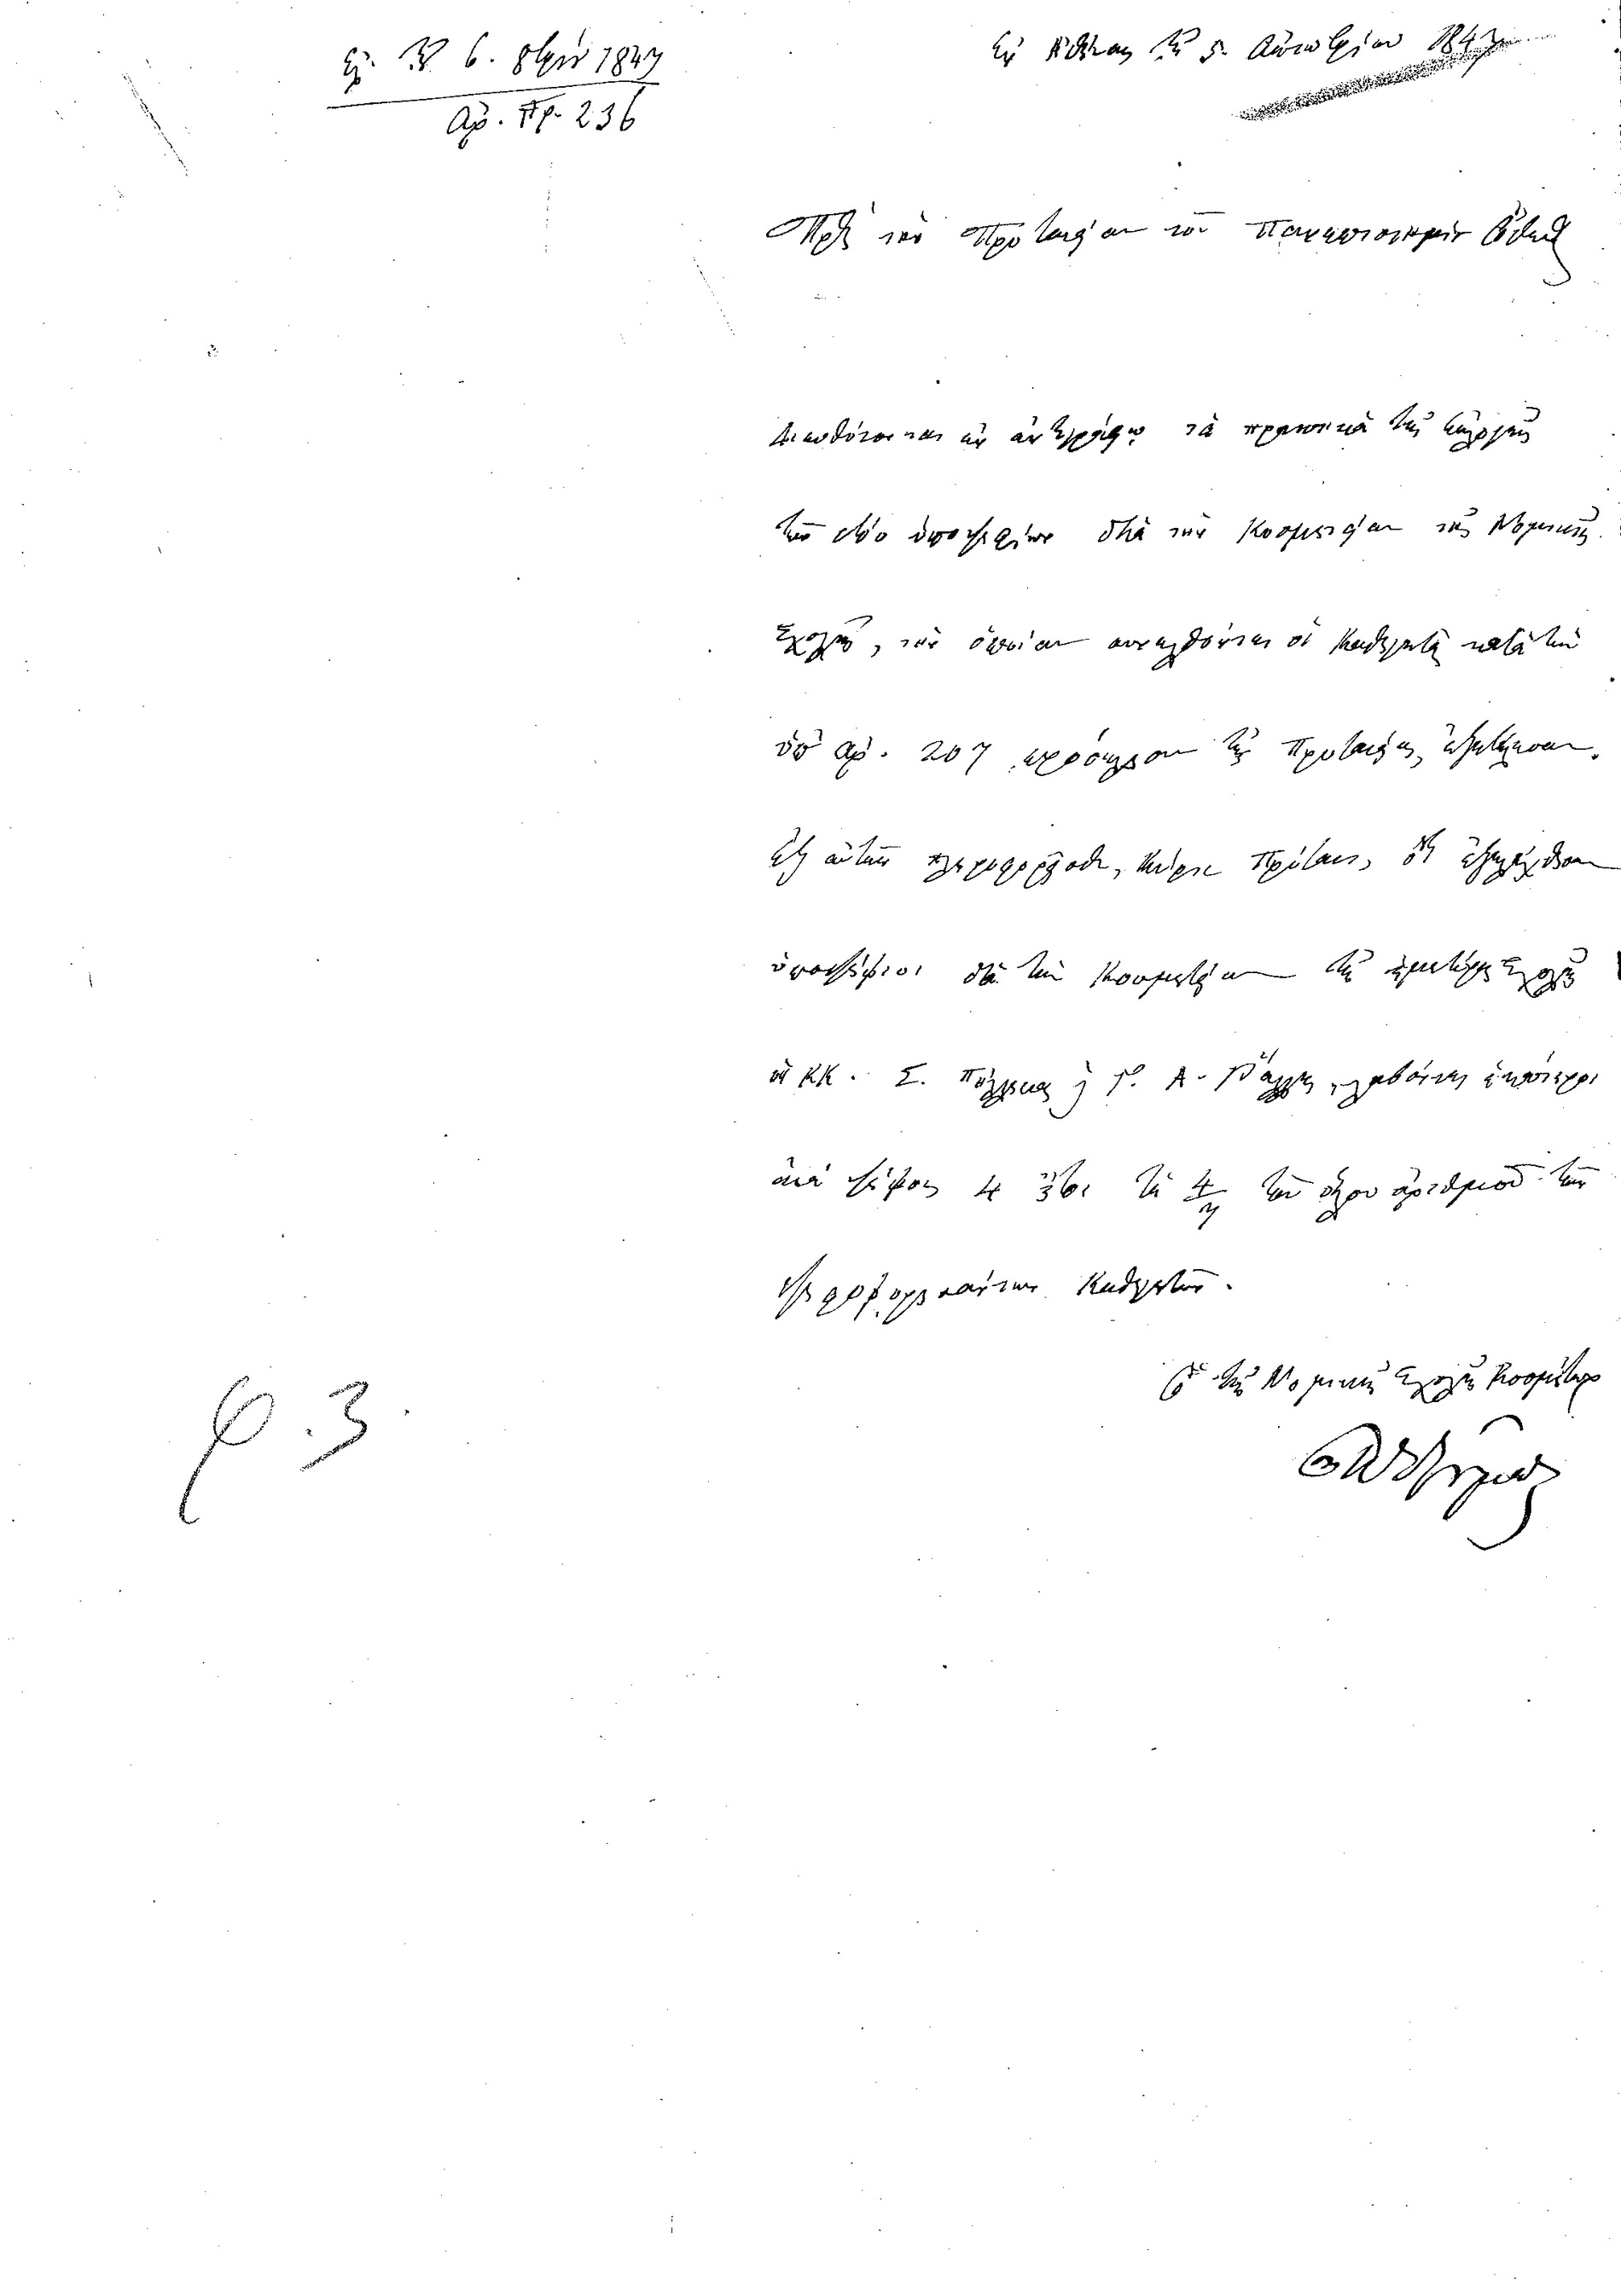 τῇ 6. 8βρίου 1847
Ἀρ. Πρ. 236
Ἐν Ἀθήναις τῇ 5. 1847
Πρὸς τὴν Πρυτανείαν τοῦ Πανεπιστημίου Ὄθωνος
ἐν ἀντιγράφῳ τὰ πρακτικὰ τῆς ἐκλογῆς
τῶν δύο ὑποψηφίων διὰ τὴν Κοσμητείαν τῆς Νομικῆς
Σχολῆς, τὴν ὁποίαν συνελθόντες οἱ Καθηγηταὶ κατὰ τὴν
ὑπ' ἀρ. 207 πρόσκλησιν τῆς Πρυτανείας, ἐξετέλεσαν.
Ἐξ αὐτῶν πληροφορεῖσθε, Κύριε Πρύτανι, ὅτι ἐξελέχθησαν
ὑποψήφιοι διὰ τὴν Κοσμητείαν τῆς ἡμετέρας Σχολῆς
οἱ κκ. Σ. Πήλικας καὶ Γ. Α. Ῥάλλης, λαβόντες
ἀνὰ ψήφους 4 ἤτοι τὰ 4/7 τοῦ ὅλου ἀριθμοῦ τῶν
ψηφοφορησάντων Καθηγητῶν.
Ὁ τῆς Νομικῆς Σχολῆς Κοσμήτωρ
φ. 3